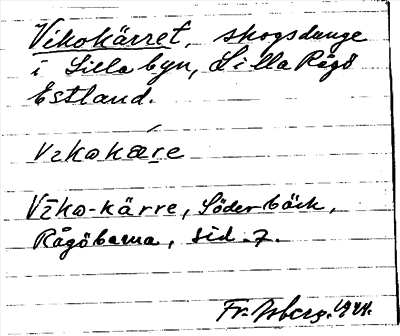 Vikokärret, skogsdunge
i Lilla byn, Lilla Rågö
Estland.
Vikokære
Viko-kärre, Söderbäck,
Rågöborna, sid. 7.
1944.